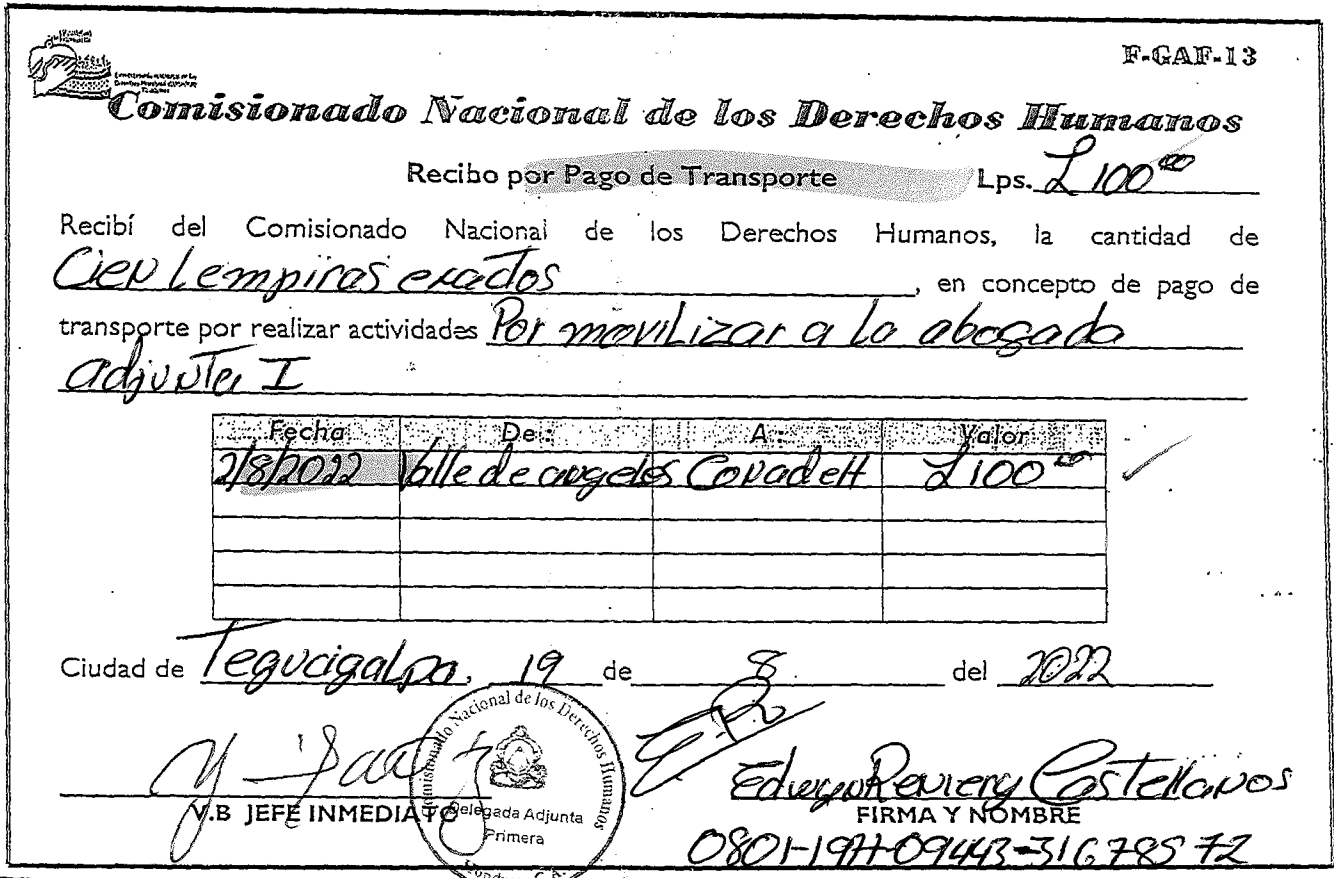 F-GAF-13
Comisionado Nacional de los Derechos Humanos
Recibo por Pago de Transporte Lps. L 100.00
Recibí del Comisionado Nacional de los Derechos Humanos, la cantidad de
Cien Lempiras exactos, en concepto de pago de
transporte por realizar actividades Por movilizar a la abogada
adjunta I
Fecha De: A: Valor
2/8/2022 Valle de angeles Conadeh L 100.00
Ciudad de Tegucigalpa, 19 de 8 del 2022
Comisionado Nacional de los Derechos Humanos
Delegada Adjunta
Primera
Edwyn Castellanos
V.B JEFE INMEDIATO FIRMA Y NOMBRE